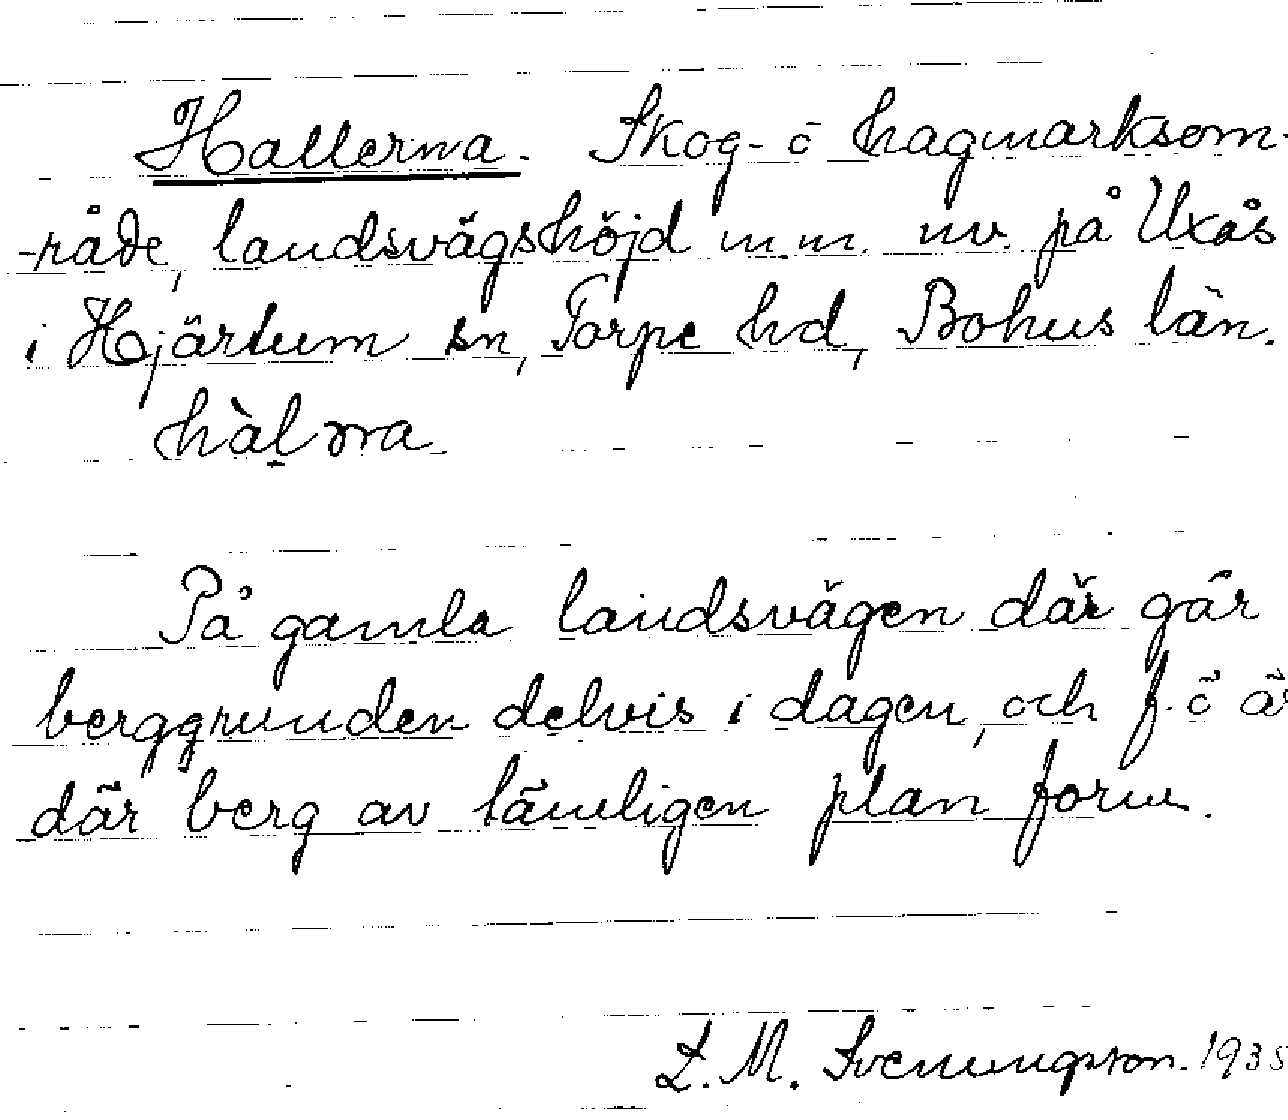 Hallerna. Skog- o hagmarksom-
-råde, landsvägshöjd m.m. nv. på Uxås
i Hjärtum sn, Torpe hd, Bohus län.
hàḷ
På gamla landsvägen där går
berggrunden delvis i dagen, och f. ö är
där berg av tämligen plan form.
L. M. Svenungsson. 1935